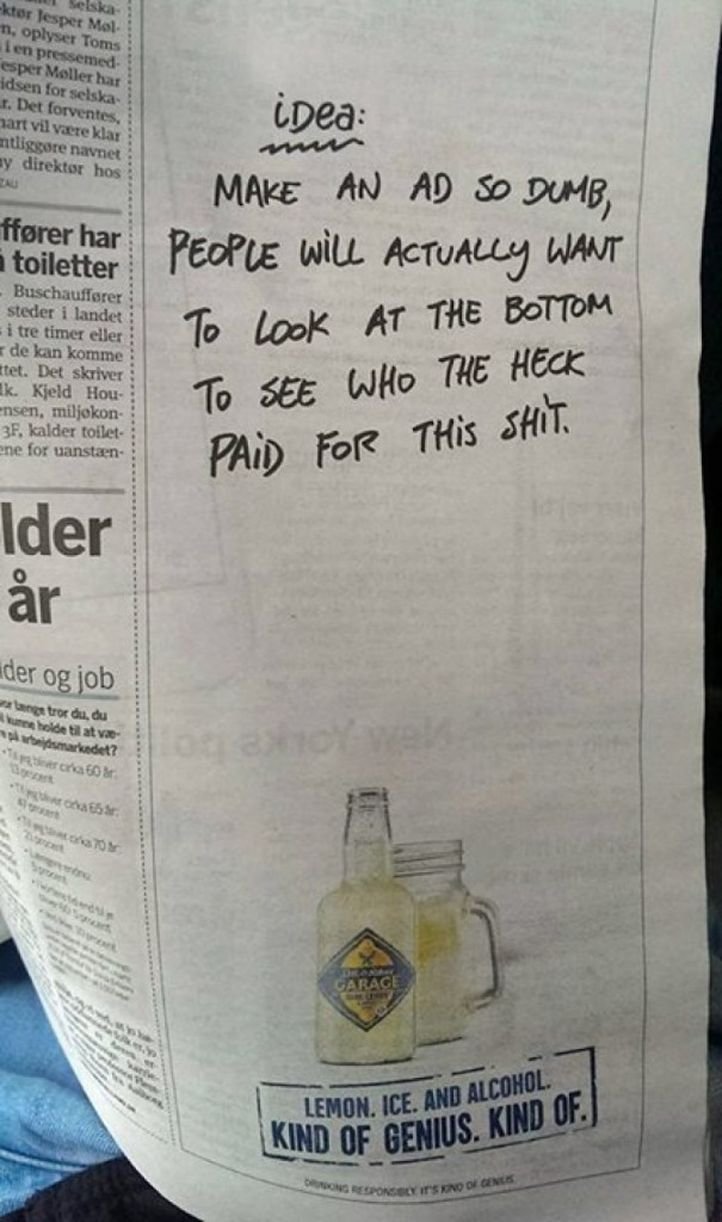 selska-
ktør Jesper Møl-
n, oplyser Toms
i en pressemed-
esper Møller har
idsen for selska-
r. Det forventes,
nart vil være klar
ntliggøre navnet
ny direktør hos
ZAU
ffører har
toiletter
. Buschauffører
steder i landet
i tre timer eller
r de kan komme
ttet. Det skriver
lk. Kjeld Hou-
ensen, miljøkon-
3F, kalder toilet-
ene for uanstæn-
lder
år
lder og job
vor længe tror du, du
kunne holde til at væ-
på arbejdsmarkedet?
• Til jeg bliver cirka 60 år:
13 procent
• Til jeg bliver cirka 65 år:
47 procent
• Til jeg bliver cirka 70 år:
procent
iDea:
MAKE AN AD SO DUMB,
PEOPLE WILL ACTUALLY WANT
TO LOOK AT THE BOTTOM
TO SEE WHO THE HECK
PAID FOR THIS SHIT.
GARAGE
LEMON. ICE. AND ALCOHOL.
KIND OF GENIUS. KIND OF.
DRINKING RESPONSIBLY. IT'S KIND OF GENIUS.